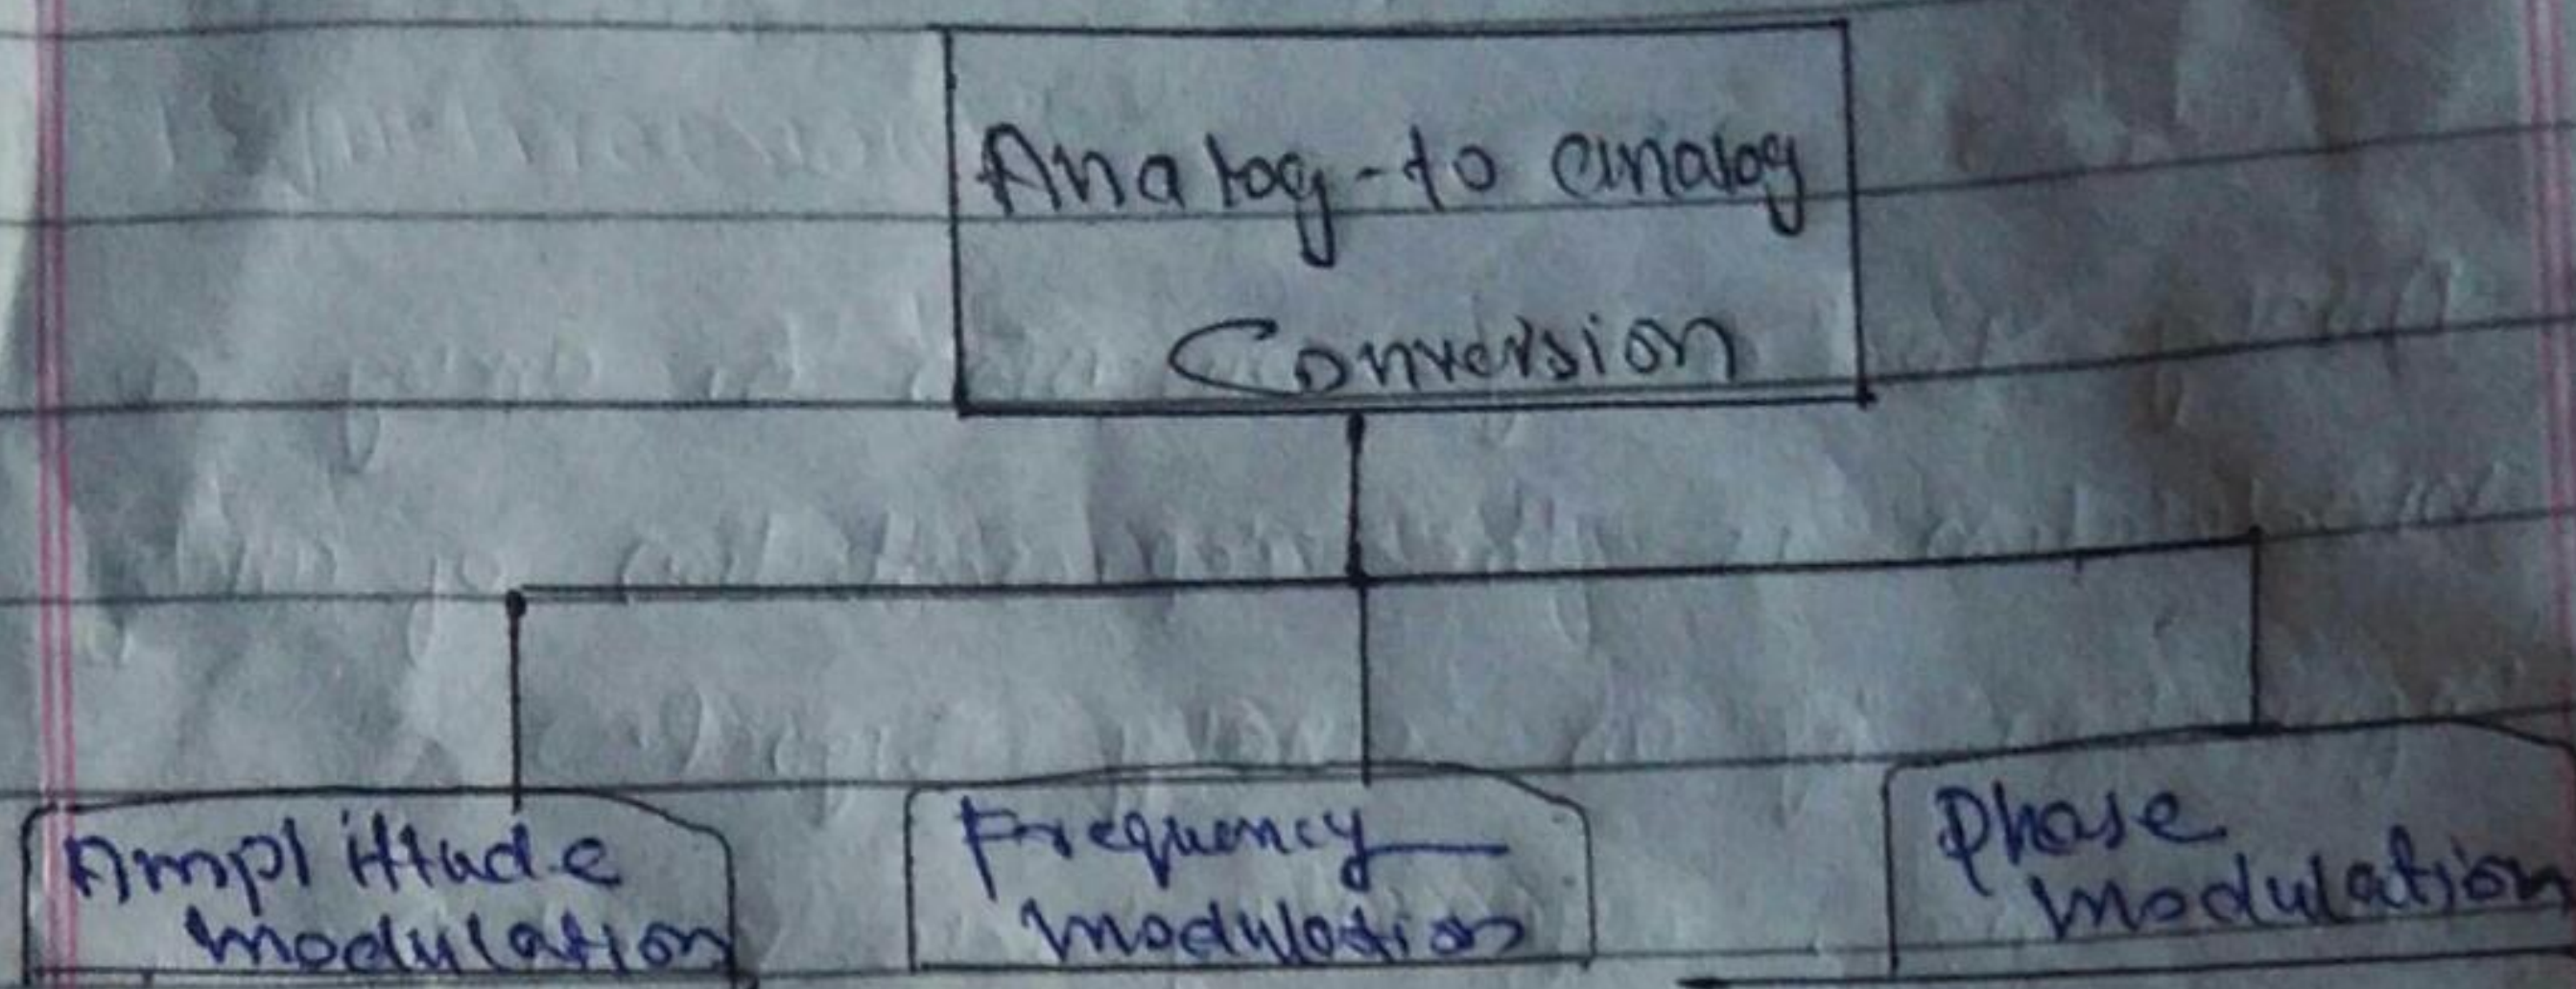 Analog-to analog
Conversion
Amplitude
modulation
Frequency
modulation
Phase
modulation